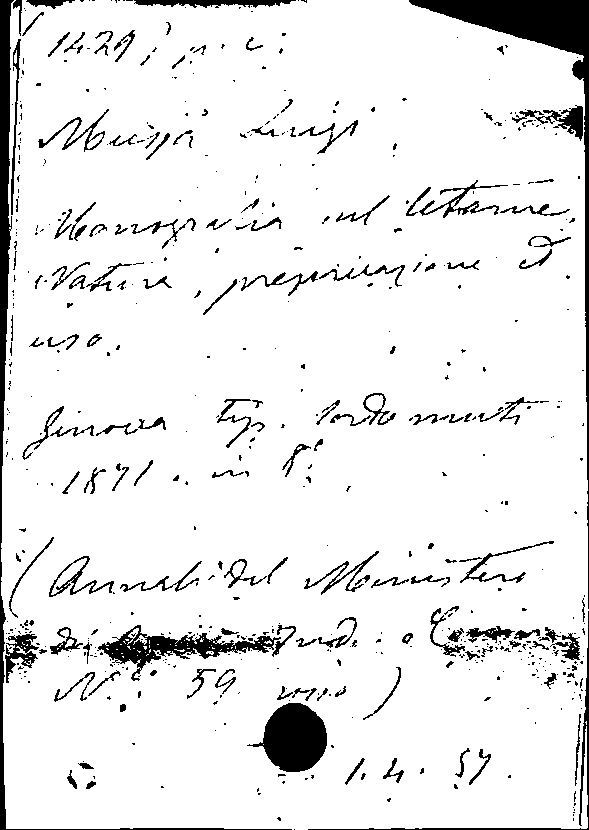 1429; p. c:
Mussa Luigi.
Monografia sul letame.
Natura, preparazione ed
uso.
Genova tip. sordo muti
1871. in 8°
(Annali del Ministero
di Ind. e
N.° 59)
1. 4. 57.